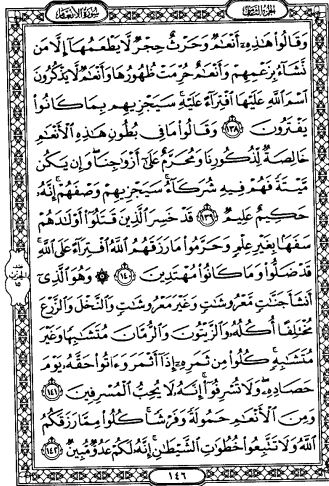 الجزء الثامن
سورة الأنعام
وَقَالُوا۟ هَٰذِهِۦٓ أَنْعَٰمٌ وَحَرْثٌ حِجْرٌ لَّا يَطْعَمُهَآ إِلَّا مَن
نَّشَآءُ بِزَعْمِهِمْ وَأَنْعَٰمٌ حُرِّمَتْ ظُهُورُهَا وَأَنْعَٰمٌ لَّا يَذْكُرُونَ
ٱسْمَ ٱللَّهِ عَلَيْهَا ٱفْتِرَآءً عَلَيْهِ ۚ سَيَجْزِيهِم بِمَا كَانُوا۟
يَفْتَرُونَ ﴿١٣٨﴾ وَقَالُوا۟ مَا فِى بُطُونِ هَٰذِهِ ٱلْأَنْعَٰمِ
خَالِصَةٌ لِّذُكُورِنَا وَمُحَرَّمٌ عَلَىٰٓ أَزْوَٰجِنَا ۖ وَإِن يَكُن
مَّيْتَةً فَهُمْ فِيهِ شُرَكَآءُ ۚ سَيَجْزِيهِمْ وَصْفَهُمْ ۚ إِنَّهُۥ
حَكِيمٌ عَلِيمٌ ﴿١٣٩﴾ قَدْ خَسِرَ ٱلَّذِينَ قَتَلُوٓا۟ أَوْلَٰدَهُمْ
سَفَهًۢا بِغَيْرِ عِلْمٍ وَحَرَّمُوا۟ مَا رَزَقَهُمُ ٱللَّهُ ٱفْتِرَآءً عَلَى ٱللَّهِ ۚ
قَدْ ضَلُّوا۟ وَمَا كَانُوا۟ مُهْتَدِينَ ﴿١٤٠﴾ ۞ وَهُوَ ٱلَّذِىٓ
أَنشَأَ جَنَّٰتٍ مَّعْرُوشَٰتٍ وَغَيْرَ مَعْرُوشَٰتٍ وَٱلنَّخْلَ وَٱلزَّرْعَ
مُخْتَلِفًا أُكُلُهُۥ وَٱلزَّيْتُونَ وَٱلرُّمَّانَ مُتَشَٰبِهًا وَغَيْرَ
مُتَشَٰبِهٍ ۚ كُلُوا۟ مِن ثَمَرِهِۦٓ إِذَآ أَثْمَرَ وَءَاتُوا۟ حَقَّهُۥ يَوْمَ
حَصَادِهِۦ ۖ وَلَا تُسْرِفُوٓا۟ ۚ إِنَّهُۥ لَا يُحِبُّ ٱلْمُسْرِفِينَ ﴿١٤١﴾
وَمِنَ ٱلْأَنْعَٰمِ حَمُولَةً وَفَرْشًا ۚ كُلُوا۟ مِمَّا رَزَقَكُمُ
ٱللَّهُ وَلَا تَتَّبِعُوا۟ خُطُوَٰتِ ٱلشَّيْطَٰنِ ۚ إِنَّهُۥ لَكُمْ عَدُوٌّ مُّبِينٌ ﴿١٤٢﴾
١٤٦